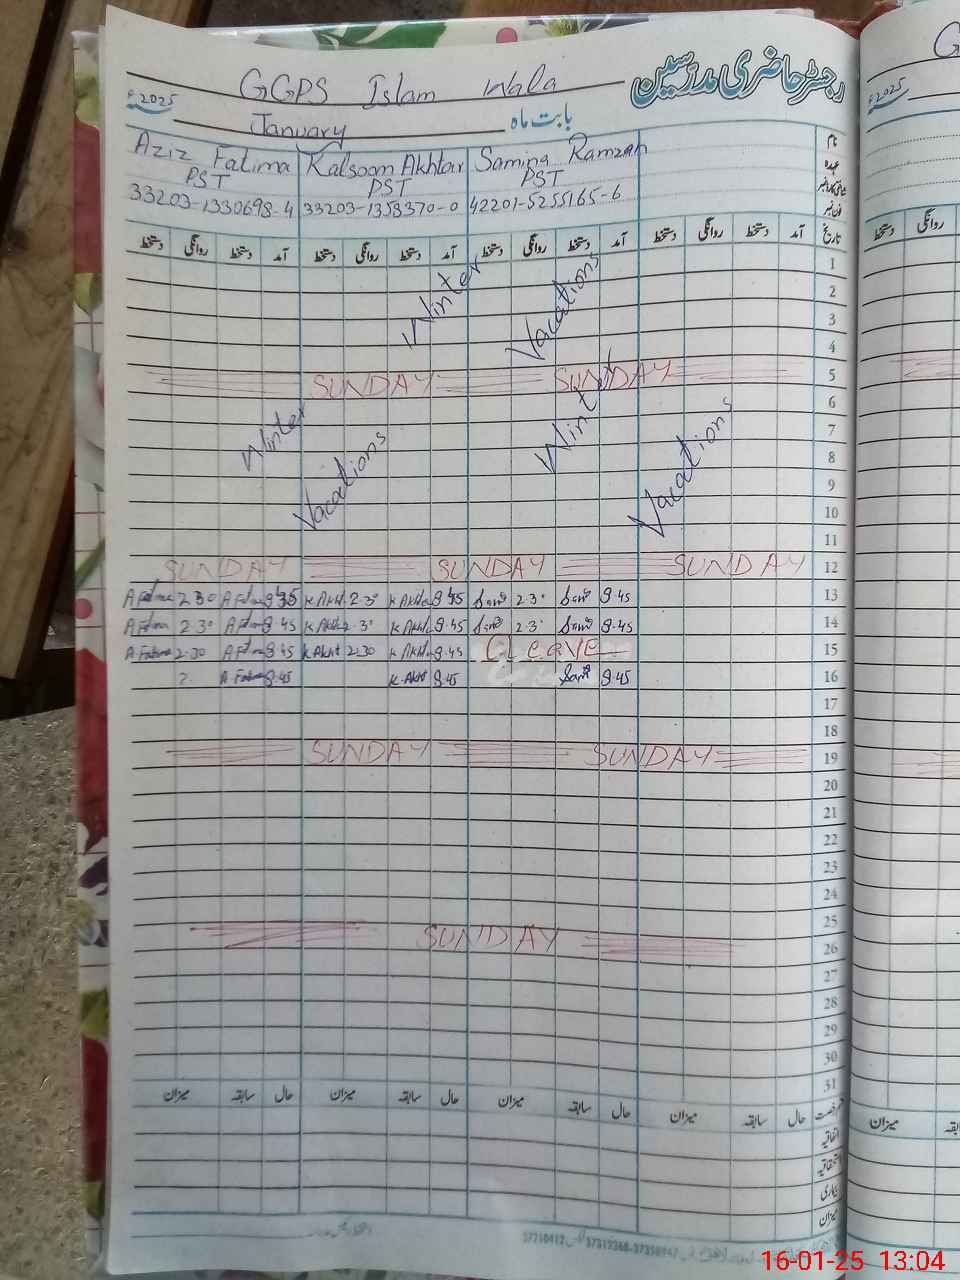 رجسٹر حاضری مدرسین
GGPS Islam Wala
2025ء
بابت ماہ January
نام Aziz Fatima Kalsoom Akhtar Samina Ramzan
عہدہ PST PST PST
33203-1330698-4 33203-1358370-0 42201-5255165-6
فون نمبر
تاریخ آمد دستخط روانگی دستخط آمد دستخط روانگی دستخط آمد دستخط روانگی دستخط آمد دستخط روانگی دستخط
1
2
Winter Vacations
3
4
5 SUNDAY SUNDAY
6
7
Winter Vacations Winter Vacations
8
9
10
11
12 SUNDAY SUNDAY SUNDAY
13 A Fatima 2.30 A Fatima 8:45 K Akht 2.30 K Akht 8:45 Sami 2.30 Sami 8.45
14 A Fatima 2.30 A Fatima 8.45 K Akht 2.30 K Akht 8.45 Sami 2.3 Sami 8.45
15 A Fatima 2.30 A Fatima 8.45 K Akht 2.30 K Akht 8.45 C Leave
16 2. A. Fatima 8.45 K. Akht 8.45 Sami 8.45
17
18
19 SUNDAY SUNDAY
20
21
22
23
24
25
26 SUNDAY
27
28
29
30
31
حال سابقہ میزان حال سابقہ میزان حال سابقہ میزان حال سابقہ میزان
اتفاقیہ
استحقاقیہ
بیماری
میزان
G
2025ء
روانگی دستخط
میزان
16-01-25 13:04